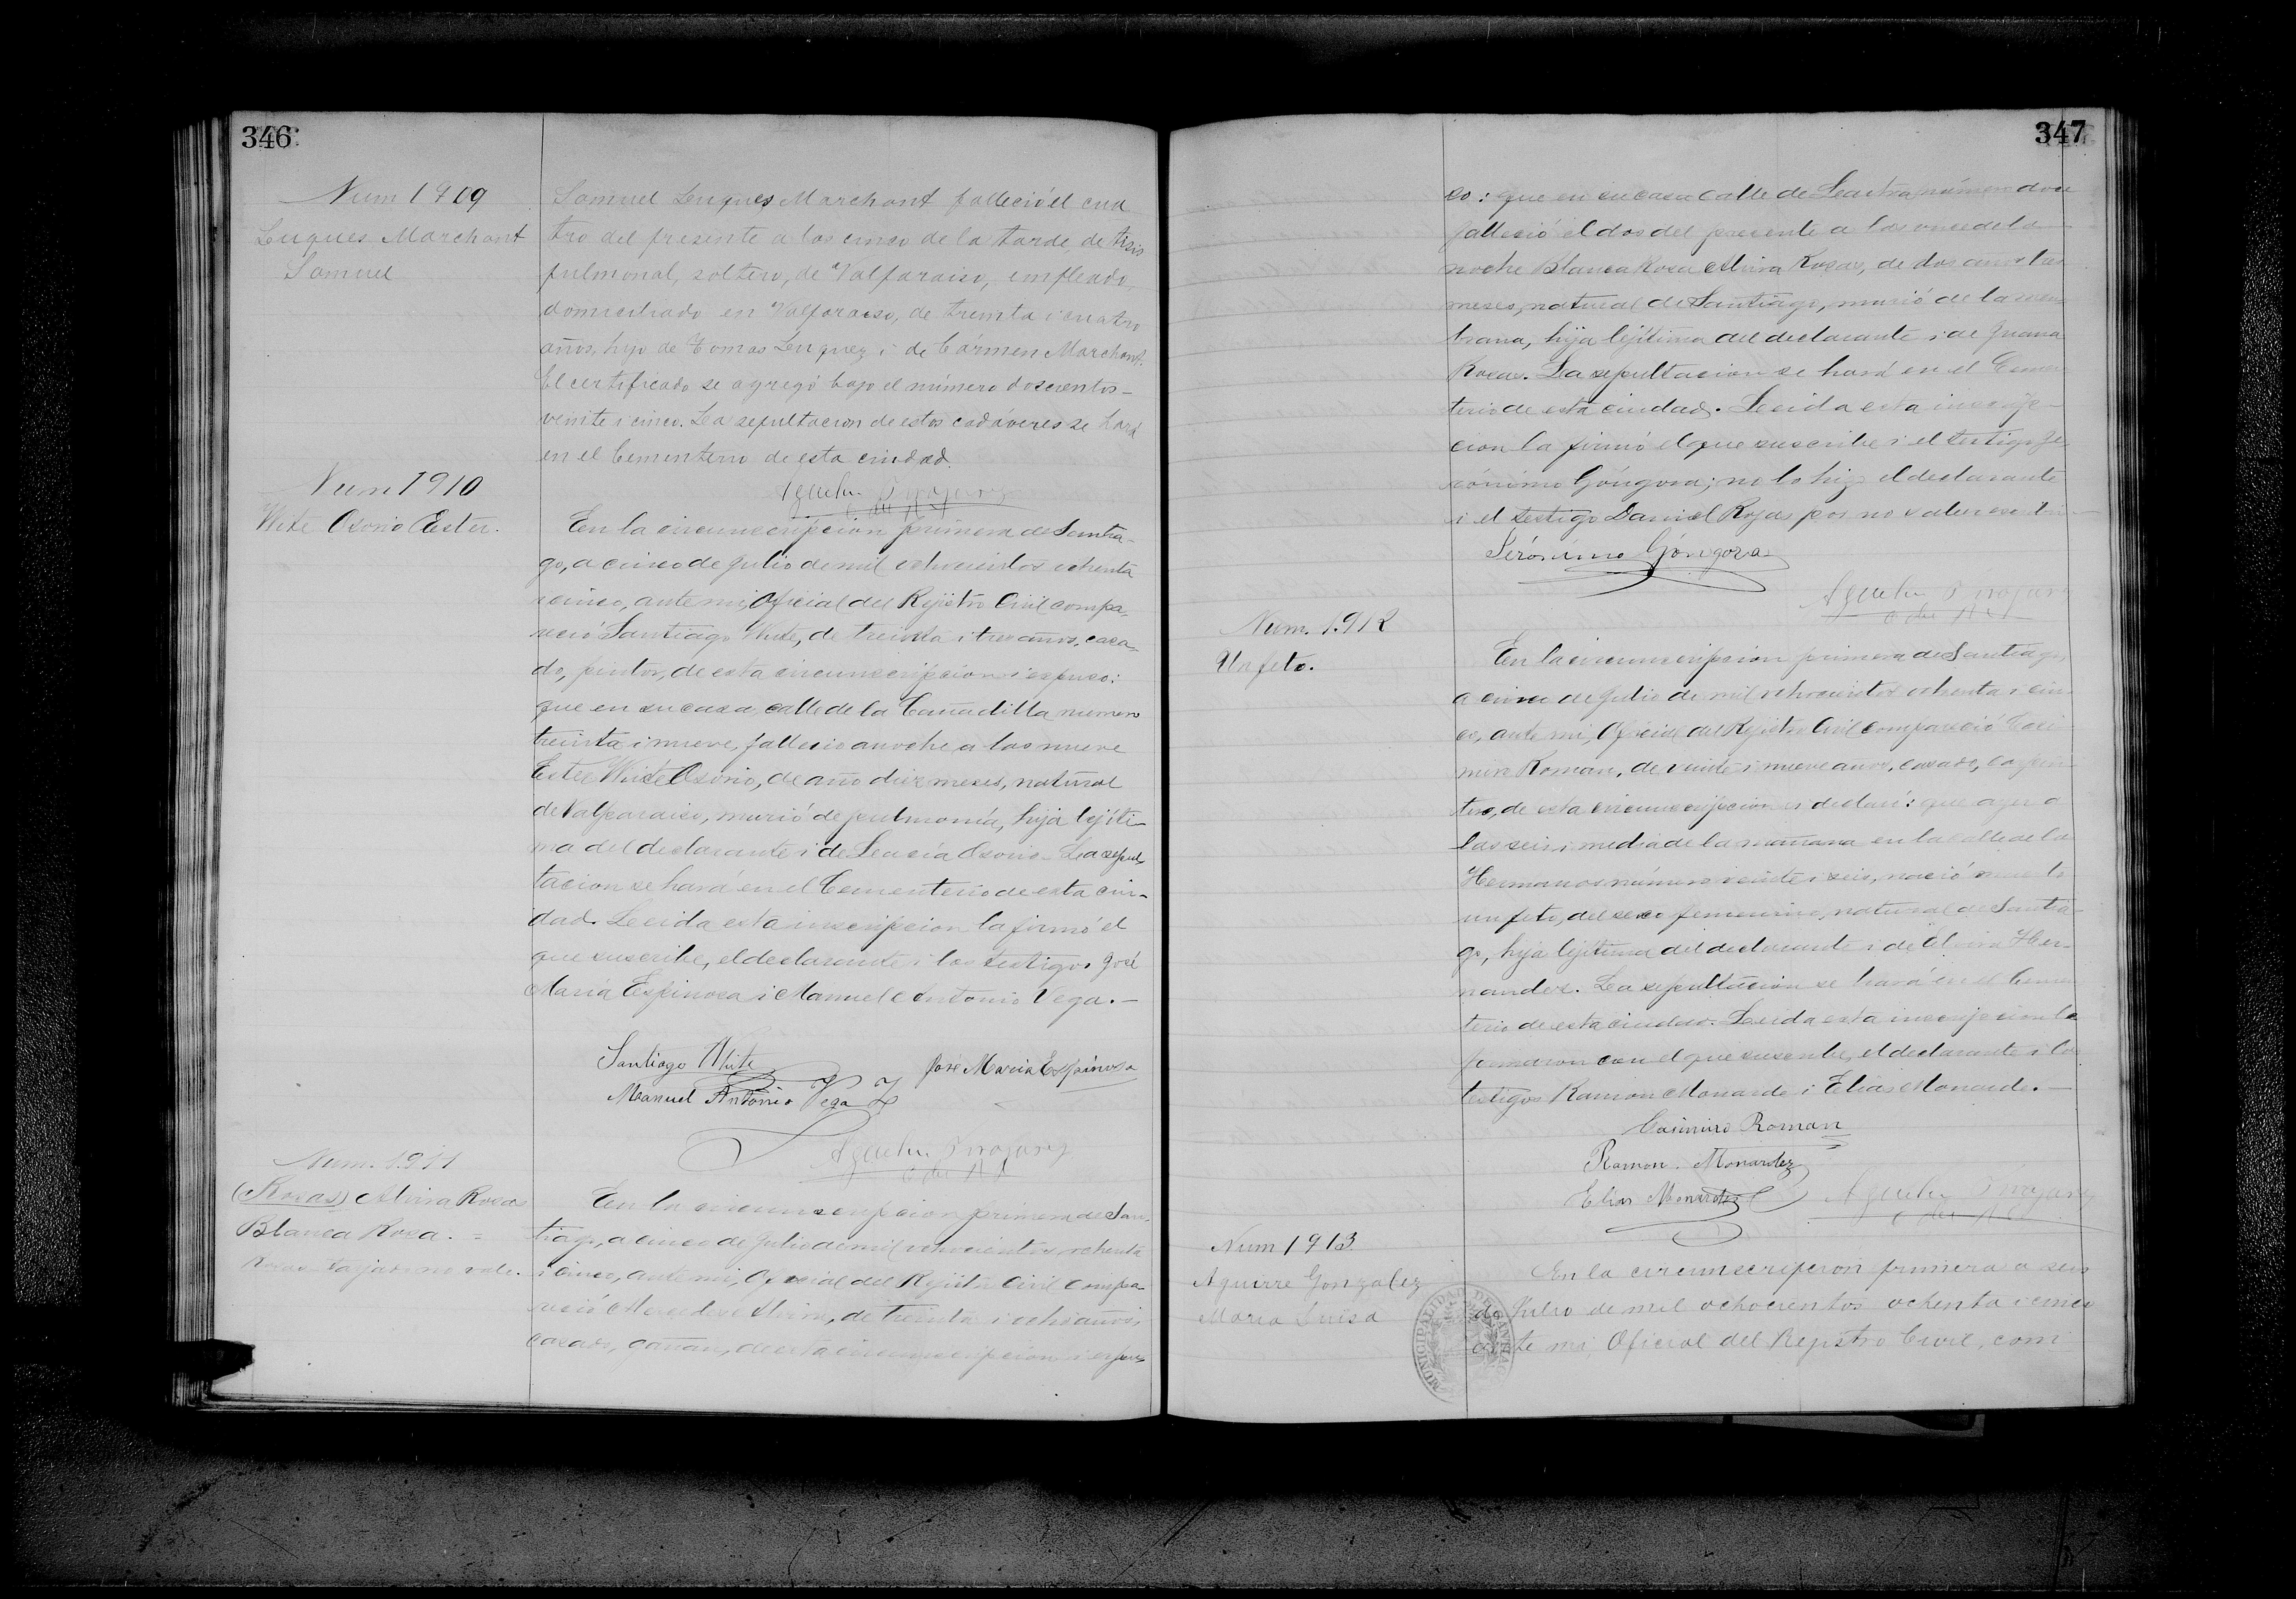 346
Num 1909
Luques Marchant
Samuel
Samuel Luques Marchant falleció el cua
tro del presente a las cinco de la tarde, de tisis
pulmonal, soltero, de Valparaiso, empleado,
domiciliado en Valparaiso, de treinta i cuatro
años, hijo de Tomas Luquez i de Cármen Marchant.
El certificado se agregó bajo el número doscientos-
veinte i cinco. La sepultacion de estos cadáveres se hará
en el Cementerio de esta ciudad.
Num 1910
Wite Osorio Ester.
En la circunscripcion primera de Santia-
go, a cinco de Julio de mil ochocientos ochenta
i cinco, ante mi, Oficial del Rejistro Civil compa-
reció Santiago Wite, de treinta i tres años, casa-
do, pintor, de esta circunscripcion i espuso:
que en su casa, calle de la Cañadilla numero
treinta i nueve, fallecio anoche a las nueve
Ester Wite Osorio, de año diez meses, natural
de Valparaiso, murió de pulmonía, hija lejíti-
ma del declarante i de Osorio. La sepul-
tacion se hará en el Cementerio de esta ciu-
dad. Leida esta inscripcion la firmó el
que suscribe, el declarante i los testigos José
Maria Espinosa i Manuel Antonio Vega.-
Santiago Wite
José Maria Espinosa
Manuel Antonio Vega Z
Num. 1911
(Rosas) Alvina Rosas
Blanca Rosa. =
Rosas tajado no vale.
En la circunscripcion primera de San-
tiago, a cinco de Julio de mil ochocientos ochenta
i cinco, ante mi, Oficial del Rejistro Civil compa-
reció de treinta i ocho años,
casado, gañan, de esta circunscripcion i espus
347
so: que en su casa calle de número doce
falleció el dos del presente a las once de la
noche Blanca Rosa Alvina Rosas, de dos años tres
meses, natural de Santiago, murió de la mem
brana, hija lejítima del declarante i de Juana
Rosas. La sepultacion se hará en el Cemen
terio de esta ciudad. Leida esta inscrip-
cion la firmó el que suscribe i el testigo Je
rónimo Góngora; no lo hizo el declarante
i el testigo Daniel Rojas por no saber escribir.-
Jerónimo Góngora
Num. 1.912
Un feto.
En la circunscripcion primera de Santiago,
a cinco de Julio de mil ochocientos ochenta i cin-
co, ante mi, Oficial del Rejistro Civil compareció Casi-
miro Roman, de veinte i nueve años, casado, carpin-
tero, de esta circunscripcion i declaró: que ayer a
las seis i media de la mañana en la calle de la
Hermanas número veinte i seis, nació muerto
un feto, del sexo femenino, natural de Santia-
go, hija lejítima del declarante i de Elvira Her-
nandez. La sepultacion se hará en el Cemen
terio de esta ciudad. Leida esta inscripcion la
firmaron con el que suscribe, el declarante i los
testigos Ramon Monarde i Elias Monarde.-
Casimiro Roman
Ramon. Monardez
Elias Monardez
Num 1913
Aguirre Gonzalez
Maria Luisa
En la circunscripcion primera a seis
de Julio de mil ochocientos ochenta i cinco
ante mi, Oficial del Rejistro Civil, com
MUNICIPALIDAD DE SANTIAGO